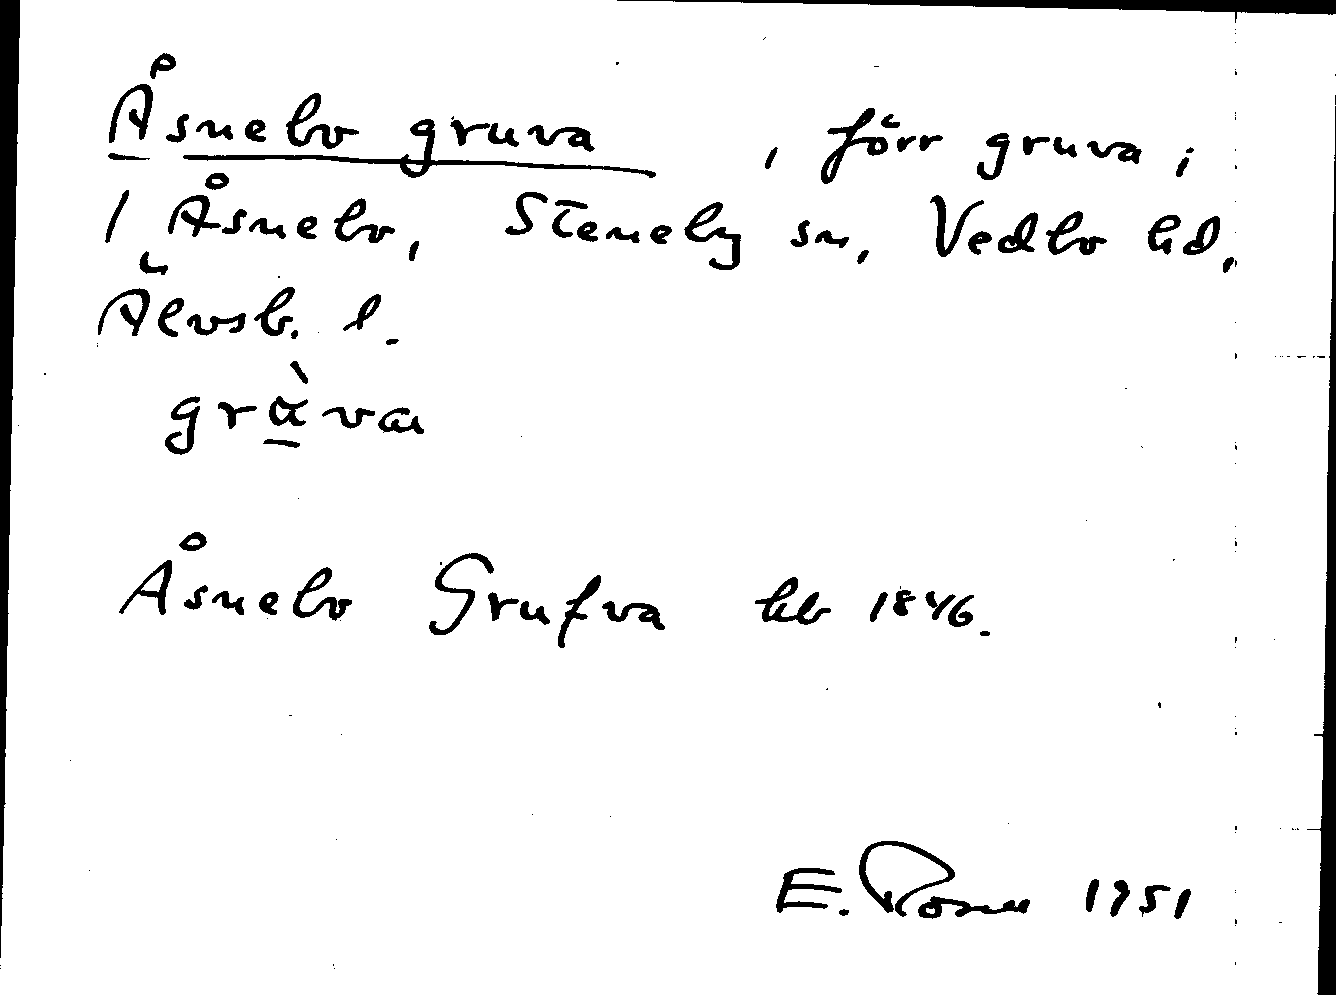 Åsnebo gruva, förr gruva i
1 Åsnebo, Steneby sn, Vedbo hd,
Älvsb. l.
gràva
Åsnebo Grufva hb 1846.
E. 1951